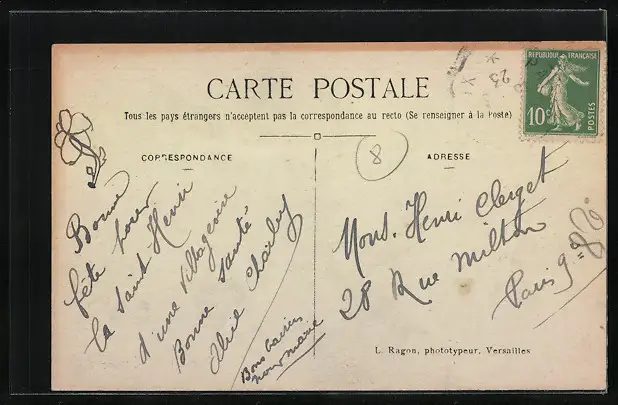 CARTE POSTALE
Tous les pays étrangers n'acceptent pas la correspondance au recto (Se renseigner à la Poste)
RÉPUBLIQUE FRANÇAISE
10c
POSTES
23
8
CORRESPONDANCE
Bonne
fête pour
la Saint Henri
d'une villageoise
Bonne santé
Charley
Bons baisers
ADRESSE
Mons. Henri Clerget
28 Rue Milton
Paris 9
L. Ragon, phototypeur, Versailles